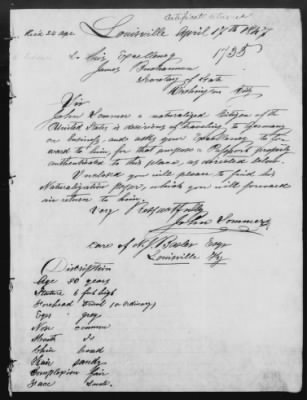 Certificate returned
Recd 20 Apr
Louisville April 17th 1847
1735
To His Excellency
James Buchannan
Secretary of State
Washington City
Sir
John Sommer a naturalized Citizen of the
United States is desirous of traveling to Germany
on business, and asks your Excellency to for-
ward to him, for that purpose a Passport properly
authenticated to this place, as directed below.
Enclosed you will please to find his
Naturalization paper, which you will forward
in return to him.
Very Respectfully
John Sommer
care of N. J. Esqr
Louisville Ky
Discription
Age 30 years
Stature 6 feet high
Forehead (ordinary)
Eyes grey
Nose common
Mouth Do
Chin broad
Hair sandy
Complexion fair
Face